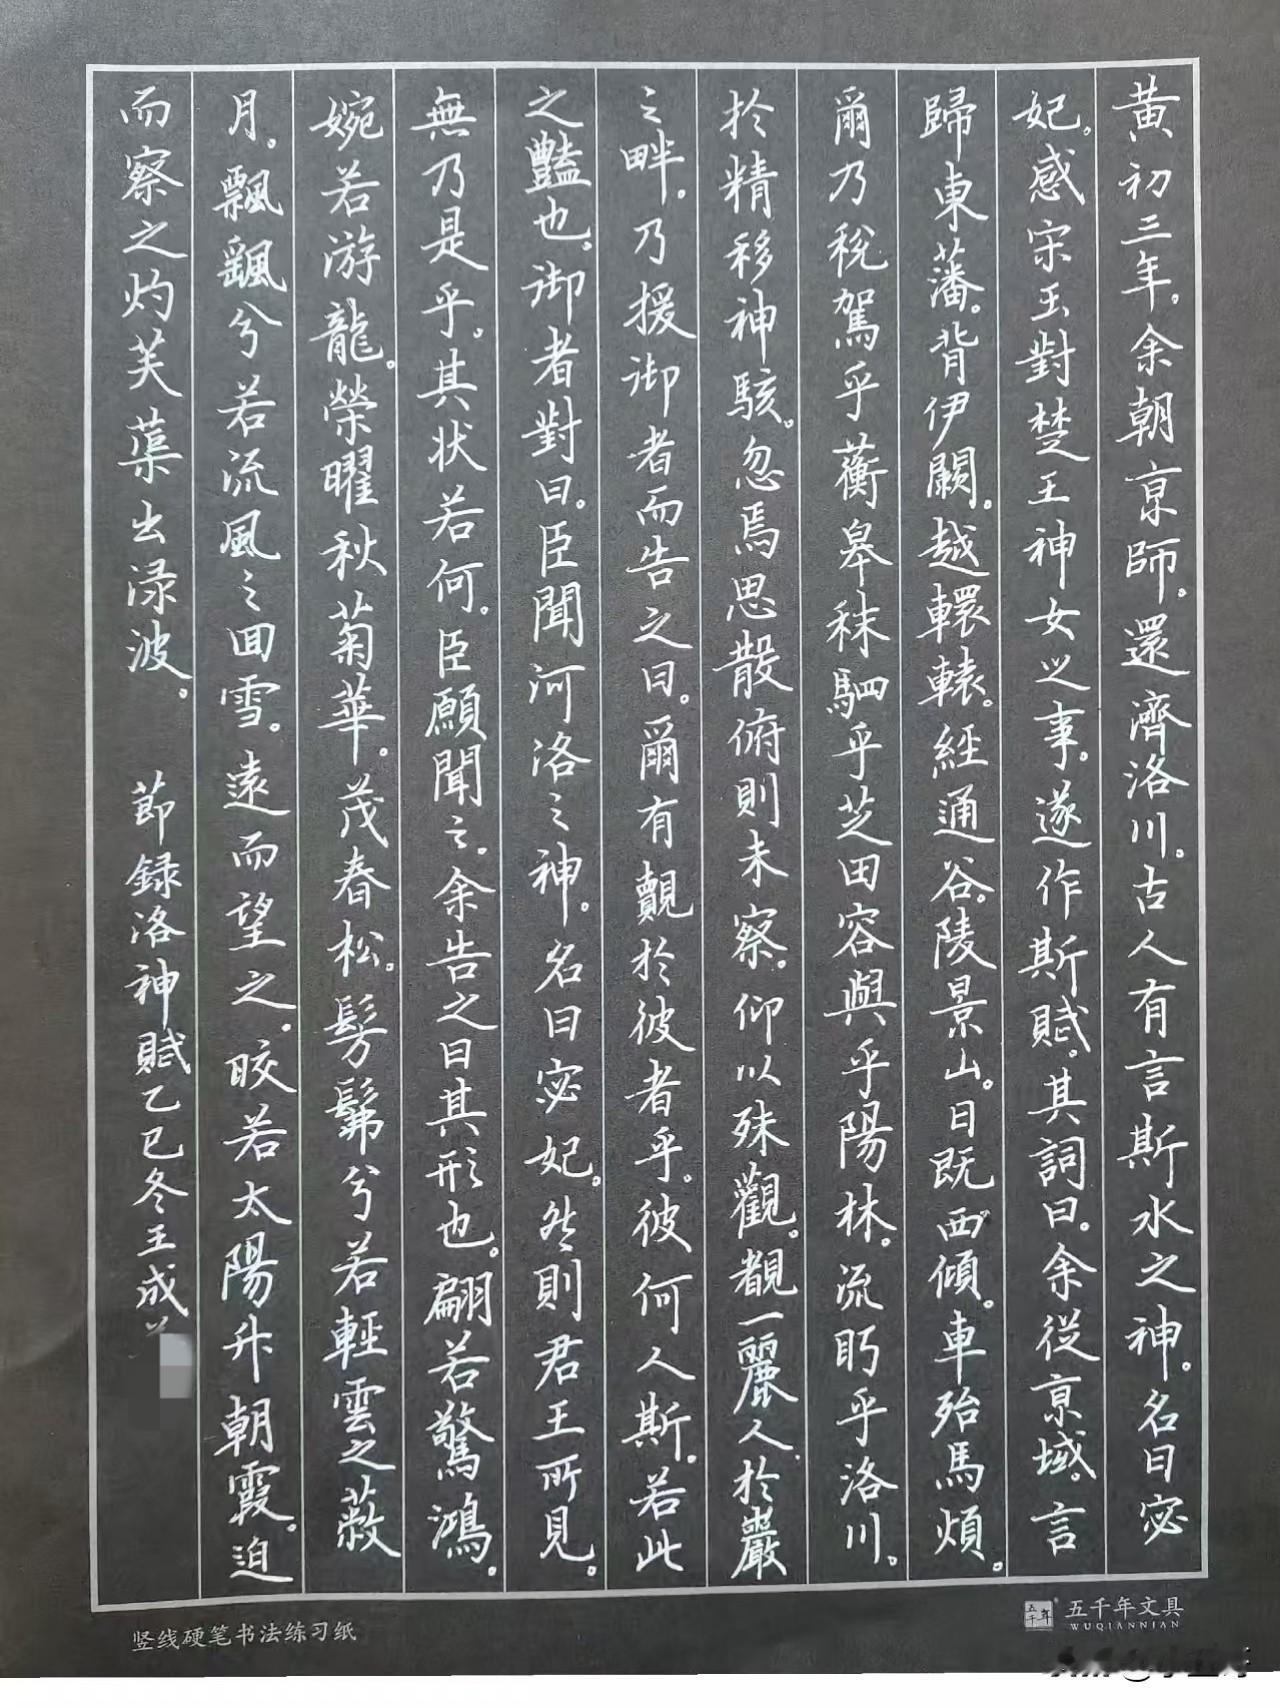 黃初三年。余朝京師。還濟洛川。古人有言斯水之神。名曰宓
妃。感宋玉對楚王神女之事。遂作斯賦。其詞曰。余從京域。言
歸東藩。背伊闕。越轘轅。經通谷。陵景山。日既西傾。車殆馬煩。
爾乃稅駕乎蘅皋秣駟乎芝田容與乎陽林。流眄乎洛川。
於精移神駭。忽焉思散俯則未察。仰以殊觀。覩一麗人。於巖
之畔。乃援御者而告之曰。爾有覿於彼者乎。彼何人斯。若此
之豔也。御者對曰。臣聞河洛之神。名曰宓妃。然則君王所見。
無乃是乎。其状若何。臣願聞之。余告之曰其形也。翩若驚鴻。
婉若游龍。榮曜秋菊華。茂春松。髣髴兮若輕雲之蔽
月。飄颻兮若流風之回雪。遠而望之。皎若太陽升朝霞。迫
而察之灼芙蕖出淥波。 節録洛神賦乙巳冬王成
竖线硬笔书法练习纸
五千年 五千年文具
WUQIANNIAN